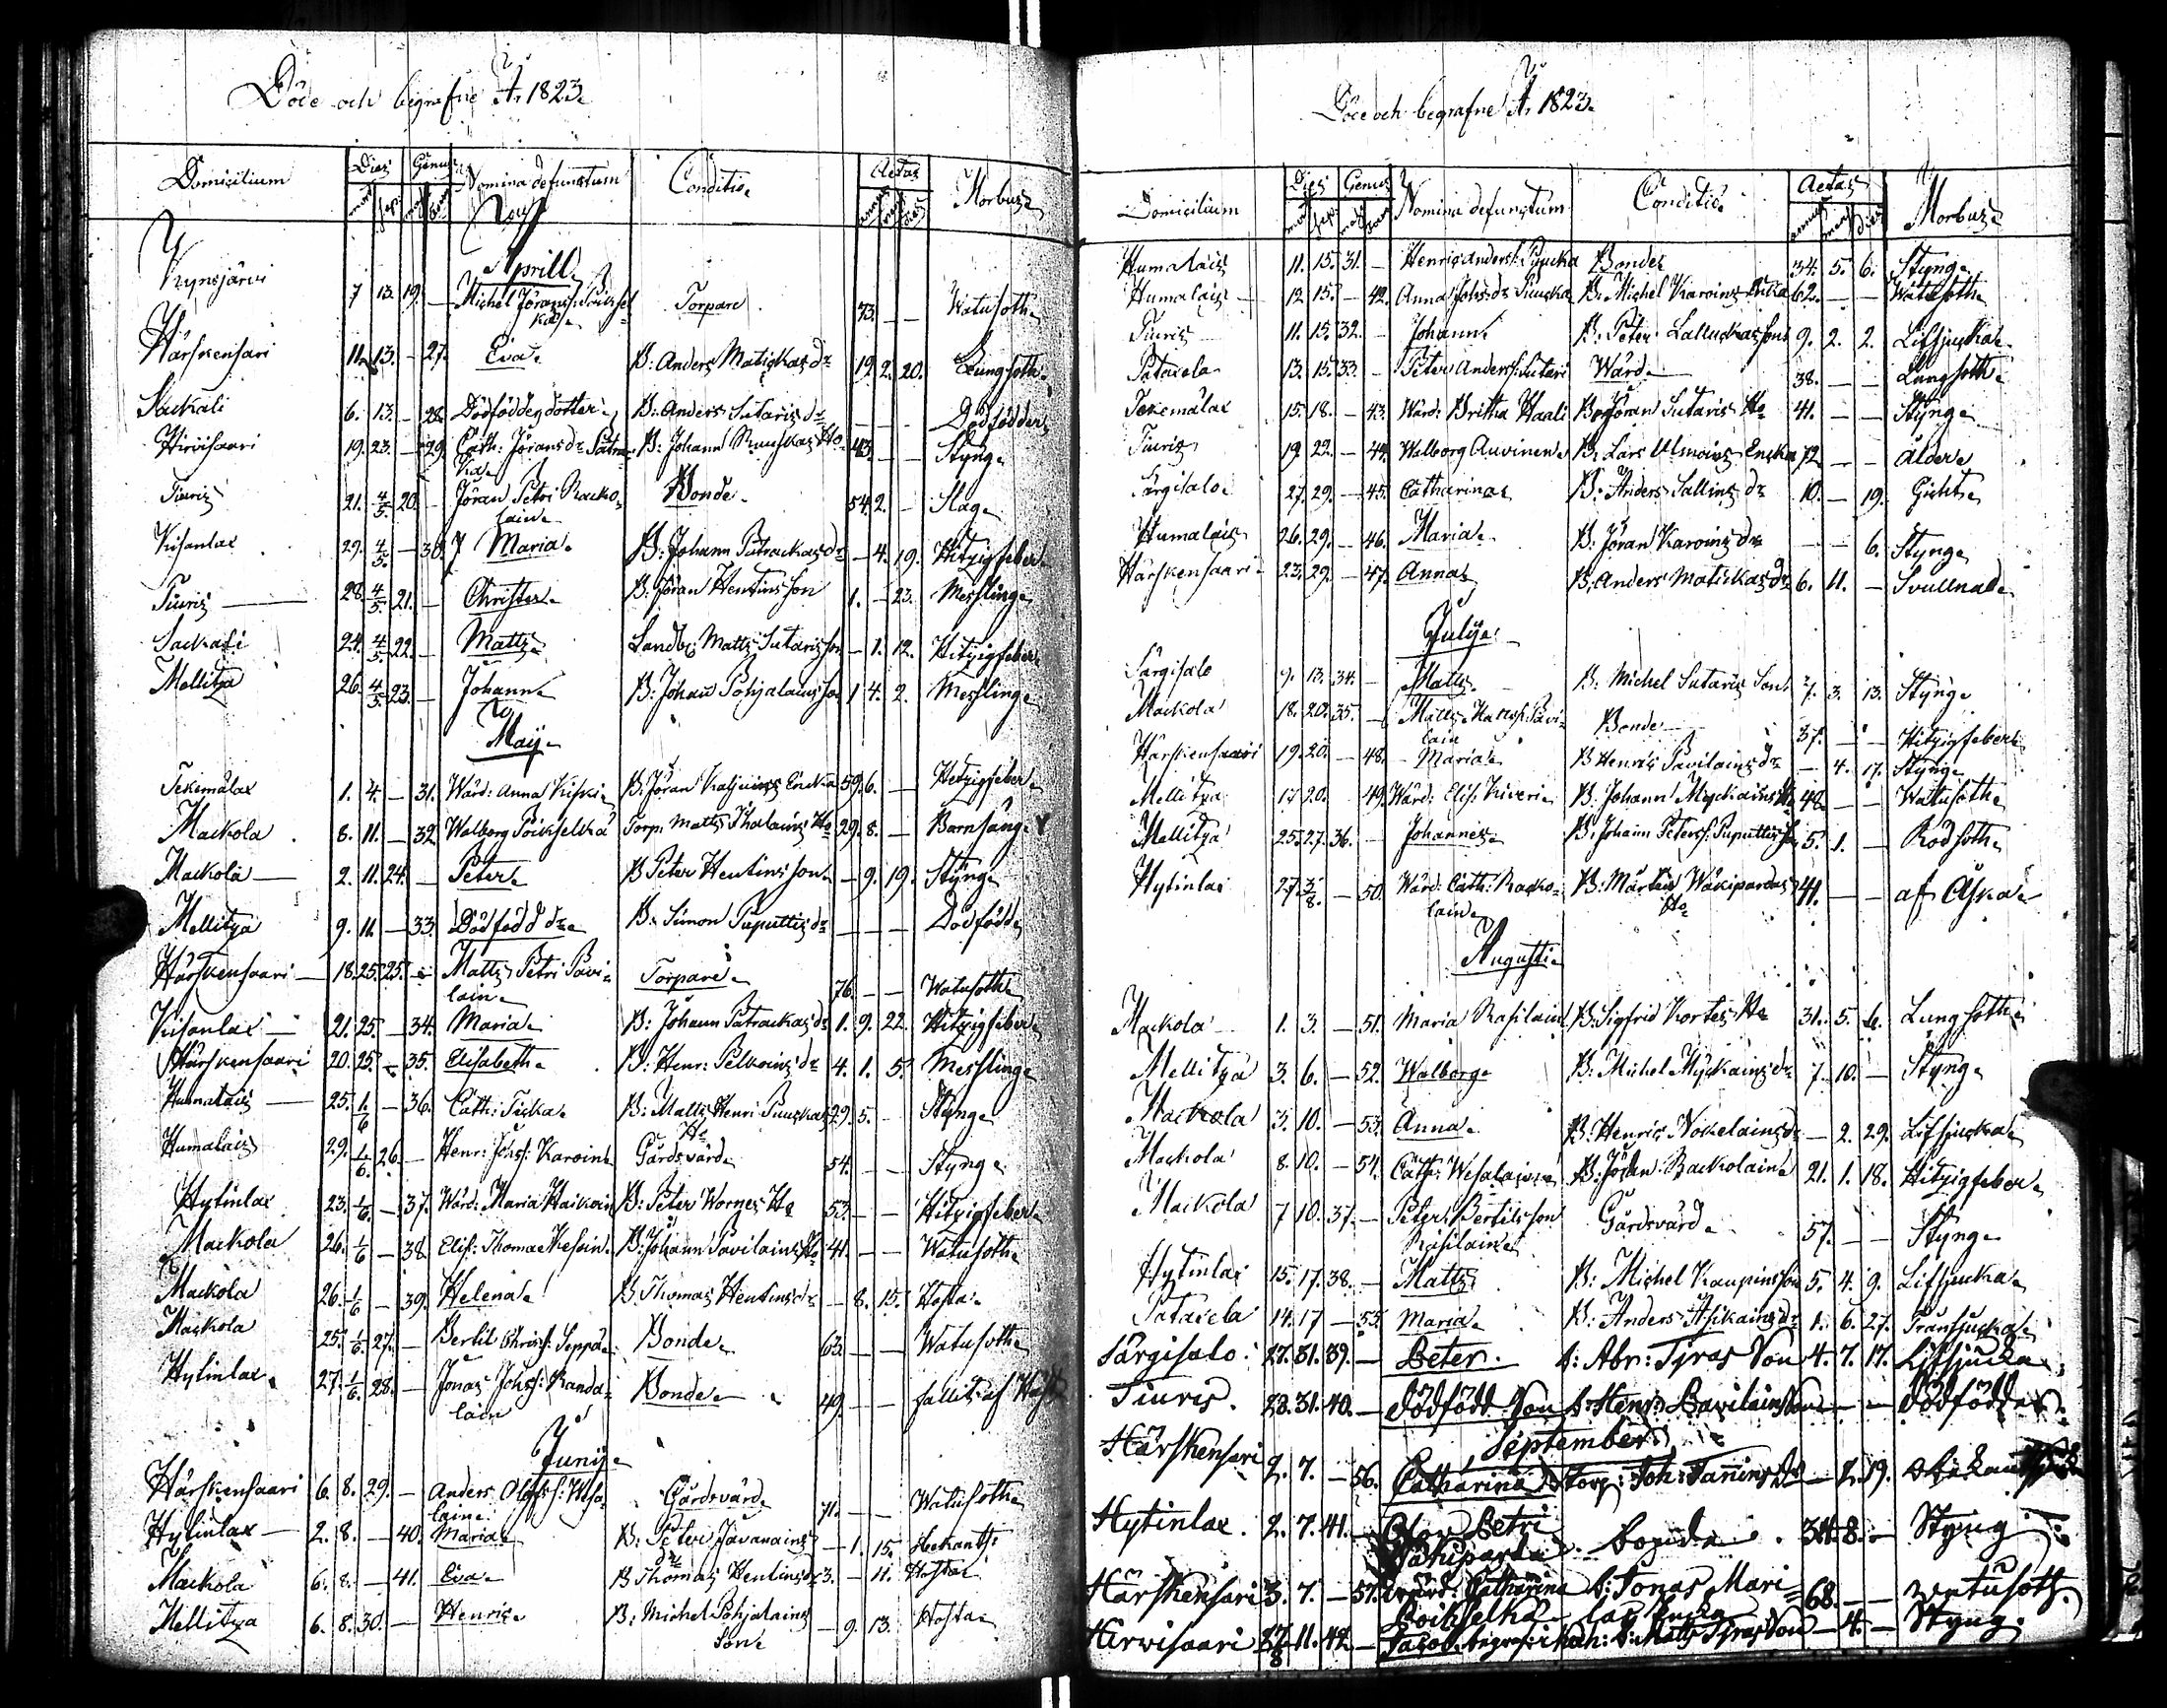 Döde och begrafne År 1823.
Domicilium Dies Genus Nomina defunctum Conditio Aetas Morbus
Aprill
Kynsjärvi 7 13. 19. — Michel Jöranss: Torpare 73. — — Watusoth
Härskensari 11. 13. — 27. Eva B: Anders Matiskas dr 19. 2. 20. Lungsoth
Sackali 6. 13. — 28. Dödfödde dotter B: Anders Sutaris dr — — — Dödfödder
Hirvisaari 19. 23. — 29. Cath: Jöransdr B: Johann Ho 43. — — Styng
Tiuris 21. 4/5. 20. — Jöran Petri Racko- Bonde 54. 2. — Slag
lain
29. 4/5. — 30. Maria B: Johann Putrackas dr — 4. 19. Hitzigfeber
Tiuris — 28. 4/5. 21. — Christer B: Jöran Hentins son 1. — 23. Messling
Sackali 24. 4/5. 22. — Matts Landb: Matts Sutaris son — 1. 12. Hitzigfeber
Mellitza 26. 4/5. 23. — Johann B: Johan Pohjalains son 1 4. 2. Messling
May
Tekemälax 1. 4. — 31. Wärd: Anna Kiski B: Jöran Encka 59. 6. — Hetzigfeber
Mackola 8. 11. — 32. Walborg Poikselkä Torp: Matts Ihalains Ho 29. 8. — Barnsäng
Mackola — 2. 11. 24. — Peter B Peter Hentins son — 9. 19. Styng
Mellitza 9. 11. — 33. Dödfödd dr B: Simon Puputtis dr — — — Dödfödd
Härskensaari — 18. 25. 25. — Matts Petri Pavi- Torpare 76. — — Watusoth
lain
21. 25. — 34. Maria B: Johann Putrackas dr 1. 9. 22. Hitzigfeber
Härskensaari 20. 25. — 35. Elisabeth B: Henr: Pelkoins dr 4. 1. 5. Messling
Humalais — 25. 1/6 — 36. Cath: B: Matts Henri Puuskas 29. 5. — Styng
Ho
Humalais 29. 1/6. 26. — Henr: Johss: Karoin Gårdsvärd 54. — — Styng
Hytinlax 23. 1/6. — 37. Wärd: Maria Haikoin B: Peter Wornes Ho 53. — — Hitzigfeber
Mackola 26. 1/6 — 38 Elis: Thomae Kesoin B: Johann Pavilains Ho 41. — — Watusoth
Mackola 26. 1/6 — 39. Helena B. Thomas Hentins dr — 8. 15. Hosta
Mackola 25. 1/6. 27. — Bertil Chriss: Seppä Bonde 63. — — Watusoth
Hytinlax 27. 1/6. 28. — Jonas Johss: Randa- Bonde 49. — — fallit af
lain
Juny
Härskensaari 6. 8. 29. — Anders Olofss: Wesa- Gårdsvärd 71. — — Watusoth
lain
Hytinlax — 2. 8. — 40. Maria B: Peter Javanains — 1. 15. Obekant
dr
Mackola 6. 8. — 41. Eva B Thomas Hentins dr 3. — 11. Hosta
Mellitza 6. 8. 30. — Henric B: Michel Pohjalains — 9. 13. Hosta
Son
Döde och begrafne År 1823.
Domicilium Dies Genus Nomina defunctum Conditio Aetas Morbus
Humalais 11. 15. 31. — Henric Anderss: Puucka Bonde 34. 5. 6. Styng
Humalais — 12 15. — 42. Anna Johs:dr Puuska B: Michel Karoins Encka 62. — — Watusoth
Tiuris — 11. 15. 32. — Johann B: Peter Lalluckas son 9. 2. 2. Lifsjucka
Patavela 13. 15. 33. — Peter Anderss: Sutari Wärd 38. — — Lungsoth
Tekemälax 15. 18. — 43. Wärd: Britha Haali B: Jöran Sutaris Ho 41. — — Styng
Tiuris 19. 22. — 44. Walborg Auvinen B. Lars Ulmoins Encka 72. — — Ålder
Särgisalo 27. 29. — 45. Catharina B: Anders Sallins dr 10. — 19. Gicht
Humalais 26. 29. — 46. Maria B: Jöran Karoins dr — — 6. Styng
Härskensaari 23. 29. — 47. Anna B: Anders Matiskas dr 6. 11. — Svullnad
July
Särgisalo 9. 13. 34. — Matts B: Michel Sutaris Son 7. 3. 13. Styng
Mackola 18. 20. 35. — Matts Matss: Pavi- Bonde 37. — — Hitzigfeber
lain
Härskensaari 19. 20. — 48. Maria B Henric Pavilains dr — 4. 17. Styng
Mellitza 17 20. 49. Wärd: Elis: Kiveri B: Johann Myckains Ho 48. — — Wattusoth
Mellitza 25. 27. 36. — Johannes B: Johann Peterss: Puputtis son 5. 1. — Rödsoth
Hytinlax 27. 3/8. — 50. Wärd: Cath: Racko- B: Mårten Wäkipardas 41. — — af Åska
lain Ho
Augusti
Mackola 1. 3. — 51. Maria Rasilain B: Sigfrid Kortes Ho 31. 5. 6. Lungsoth
Mellitza 3. 6. — 52. Walborg B: Michel Myckains dr 7. 10. — Styng
Mackola 3. 10. — 53. Anna B: Henric Nockelains dr — 2. 29. Lifsjucka
Mackola 8. 10. — 54. Cath: Wesalain B: Jöran Rackolain 21. 1. 18. Hitzigfeber
Mackola 7 10. 37. — Peter Bertilsson Gårdsvärd 57. — — Styng
Rasilain
Hytinlax 15. 17. 38. — Matts B: Michel Kaupins son 5. 4. 9. Lifsjucka
Patavela 14. 17 — 55. Maria B: Anders Asikains dr 1. 6. 27. Fransjucka
Särgisalo. 27. 31. 39. — Peter. b: Abr: Tjras Son 4. 7. 17. Lifsjucka
Tiuris. 28. 31. 40. — dödfödd Son b: Henr: Pavilains Son — — — dödfödder
September
Härskensari 2. 7. — 56. Catharina Torp: Joh: Tannins dr — 2. 19. obekant
Hytinlax. 2. 7. 41. — Olof Petri bonde. 34. 8. — Styng.
Wäkiparta
Härskensari 3. 7. — 57. wärd: Catharina b: Jonas Mari- 68. — — watusoth.
Poikselkä lax Encka
Hirvisaari 27/8 11. 42. — Jacob, b: Matts Tjras Son — 4. — Styng.